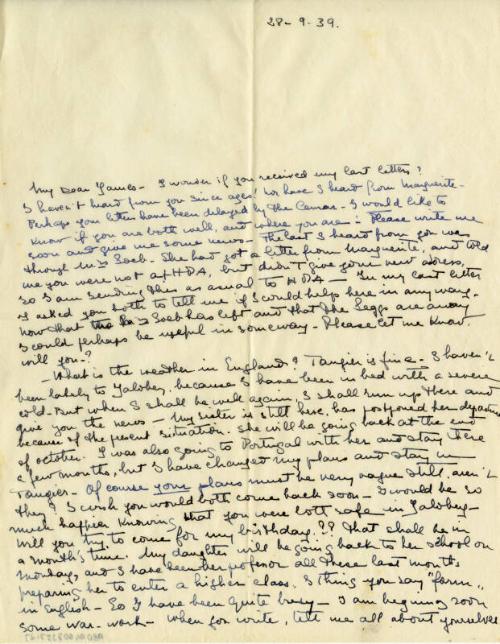 28-9-39.
My Dear James- I wonder if you received my last letters?
I haven't heard from you since ages! Nor have I heard from Marguerite-
Perhaps your letters have been delayed by the Censor- I would like to
know if you are both well, and where you are- Please write me
soon and give me some news- The last I heard from you was
through Mrs Soeb. She had got a letter from Marguerite, and told
me you were not at HDA, but didn't give your new adress,
so I am sending this as usual to HDA- In my last letter
I asked you both to tell me if I could help here in anyway.
now that Soeb has left and that the Leggs are away
I could perhaps be useful in someway- Please let me know.
will you-?
- What is the weather in England? Tangier is fine- I haven't
been lately to Jalobey, because I have been in bed with a severe
cold- But when I shall be well again, I shall run up there and
give you the news- My sister is still here, has postponed her departure
because of the present situation. She will be going back at the end
of october. I was also going to Portugal with her and stay there
a few months, but I have changed my plans and stay in
Tangier- Of course your plans must be very vague still, aren't
they? I wish you would both come back soon- I would be so
much happier knowing that you were both safe in Jalobey-
Will you try to come for my birthday?? That shall be in
a month's time. My daughter will be going back to her school on
Monday, and I have been her profesor all these last months
preparing her to enter a higher class. I thing you say "form"
in English- So I have been quite busy- I am begining soon
some war-work- When you write, tell me all about yourselves